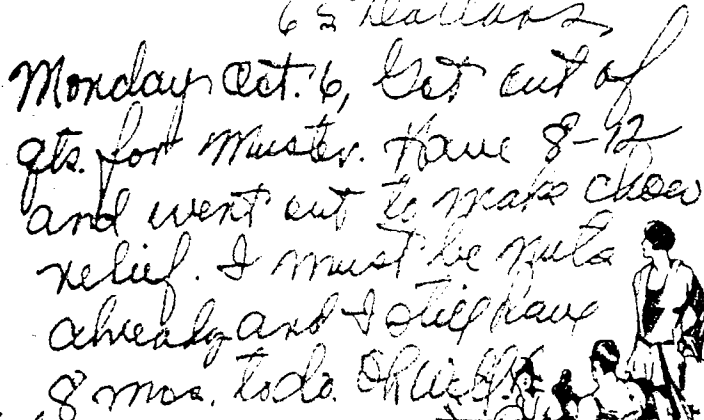 65 Dollars
Monday Oct. 6, Got out of
qts. for muster. Have 8-12
and went out to make chow
relief. I must be nuts
already and I still have
8 mos. to do. Oh well